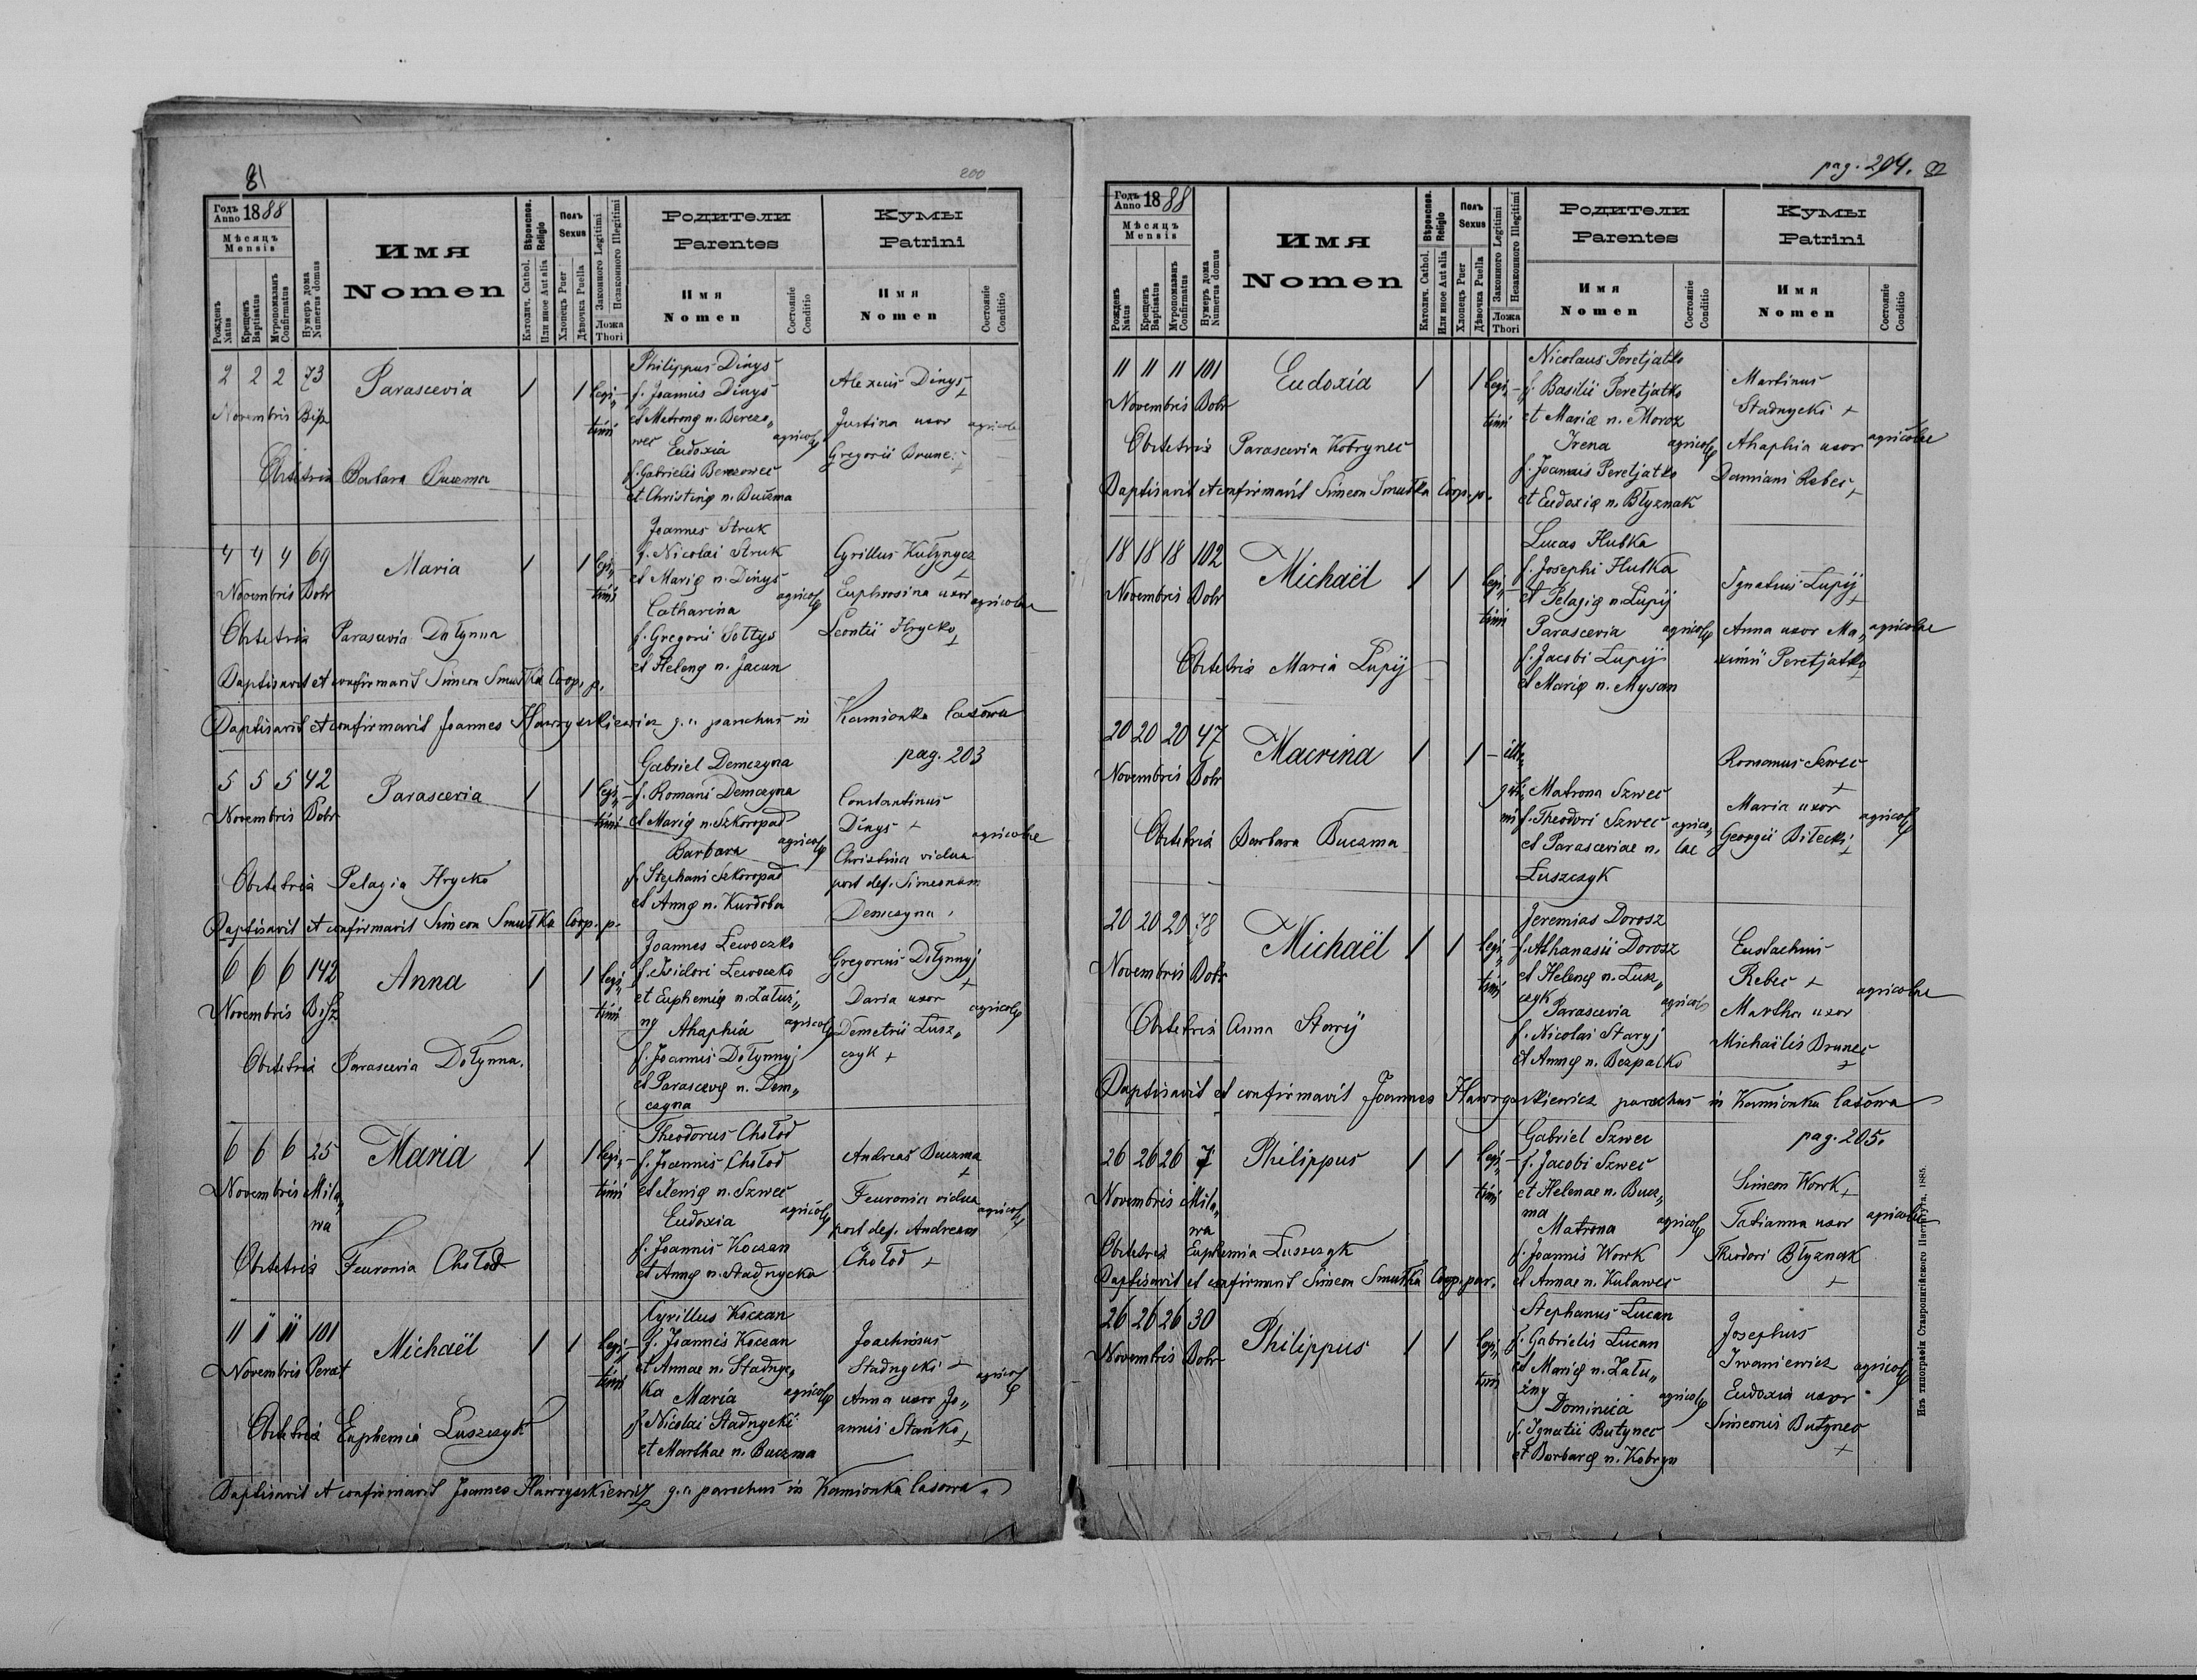 81
200
Годъ Anno 1888
Мѣсяцъ Mensis
Рожденъ Natus
Крещенъ Baptisatus
Муропомазанъ Confirmatus
Нумеръ дома Numerus domus
Имя Nomen
Вѣроиспов. Religio
Католич. Cathol.
Или иное Aut alia
Полъ Sexus
Хлопецъ Puer
Дѣвочка Puella
Законного Legitimi
Незаконного Illegitimi
Ложа Thori
Родители Parentes
Имя Nomen
Состояніе Conditio
Кумы Patrini
Имя Nomen
Состояніе Conditio
2 2 2 73
Novembris
Parascevia
1 1 legi„
timi
Philippus Dinys
f. Joannis Dinys
et Matronę n. Berezo„
wec
Eudoxia
agricolę
f. Gabrielis Berezowec
et Christinę n. Buczma
Alexius Dinys +
Justina uxor
Gregorii Brunec +
agricolae
Obstetrix Barbara Buczma
4 4 4 69
Novembris Bobr
Maria
1 1 legi„
timi
Joannes Struk
f. Nicolai Struk
et Marię n. Dinys
Catharina
agricolę
f. Gregorii Sottys
et Helenę n. Jacun
Cyrillus Kutynycz +
Euphrosina uxor
Leontii Hrycko +
agricolae
Obstetrix Parascevia Dołynna
Baptisavit et confirmavit Simeon Smutka Coop. p.
Baptisavit et confirmavit Joannes Hawryszkiewicz g. c. parochus in Kamionka lasowa
pag. 203
5 5 5 42
Novembris Bobr
Parascevia
1 1 legi„
timi
Gabriel Demczyna
f. Romani Demczyna
et Marię n. Szkoropad
Barbara
agricolę
f. Stephani Szkoropad
et Annę n. Kurdoba
Constantinus
Dinys +
Christina vidua
post def. Simeonem
Demczyna
agricolae
Obstetrix Pelagia Hrycko
Baptisavit et confirmavit Simeon Smutka Coop. p.
6 6 6 142
Novembris
Anna
1 1 legi„
timi
Joannes Lewoczko
f. Isidori Lewoczko
et Euphemię n. Załuż„
ny Ahaphia
agricolę
f. Joannis Dołynnyj
et Parascevę n. Dem„
czyna
Gregorius Dołynnyj +
Daria uxor
Demetrii Lusz„
czyk +
agricolę
Obstetrix Parascevia Dołynna.
6 6 6 25
Novembris Mila„
wa
Maria
1 1 legi„
timi
Theodorus Chołod
f. Joannis Chołod
et Xenię n. Szwec
Eudoxia
agricolę
f. Joannis Koczan
et Annę n. Stadnycka
Andreas Buczma +
Feuronia vidua
post def. Andream
Chołod +
agricolę
Obstetrix Feuronia Chołod
11 11 11 101
Novembris Perat
Michaël
1 1 legi„
timi
Kyrillus Koczan
f. Joannis Koczan
et Annae n. Stadnyc„
ka Maria
agricolę
f. Nicolai Stadnycki
et Marthae n. Buczma
Joachimus
Stadnycki +
Anna uxor Jo„
annis Stańko +
agricolę
Obstetrix Euphemia Luszczyk
Baptisavit et confirmavit Joannes Hawryszkiewicz g. c. parochus in Kamionka lasowa.
pag. 204.
Годъ Anno 1888
Мѣсяцъ Mensis
Рожденъ Natus
Крещенъ Baptisatus
Муропомазанъ Confirmatus
Нумеръ дома Numerus domus
Имя Nomen
Вѣроиспов. Religio
Католич. Cathol.
Или иное Aut alia
Полъ Sexus
Хлопецъ Puer
Дѣвочка Puella
Законного Legitimi
Незаконного Illegitimi
Ложа Thori
Родители Parentes
Имя Nomen
Состояніе Conditio
Кумы Patrini
Имя Nomen
Состояніе Conditio
11 11 11 101
Novembris Bobr
Eudoxia
1 1 legi„
timi
Nicolaus Peretjatko
f. Basilii Peretjatko
et Marię n. Moroz
Irena
agricolę
f. Joannis Peretjatko
et Eudoxię n. Błyznak
Martinus
Stadnycki +
Ahaphia uxor
Damiani Rebec +
agricolae
Obstetrix Parascevia Kobrynec
Baptisavit et confirmavit Simeon Smutka Coop. p.
18 18 18 102
Novembris Bobr
Michaël
1 1 legi„
timi
Lucas Hutka
f. Josephi Hutka
et Pelagię n. Lupij
Parascevia
agricolę
f. Jacobi Lupij
et Marię n. Mysan
Ignatius Lupij +
Anna uxor Ma„
ximii Peretjatko +
agricolae
Obstetrix Maria Lupij
20 20 20 47
Novembris Bobr
Macrina
1 1 ille„
giti„
mi
Matrona Szwec
f. Theodori Szwec
et Parasceviae n.
Luszczyk
agrico„
lae
Romanus Szwec +
Maria uxor
Georgii Bilecki +
agricolę
Obstetrix Barbara Buczma
20 20 20 78
Novembris Bobr
Michaël
1 1 legi„
timi
Jeremias Dorosz
f. Athanasii Dorosz
et Helenę n. Lusz„
czyk Parascevia
agricolę
f. Nicolai Staryj
et Annę n. Bezpalko
Eustachius
Rebec +
Martha uxor
Michaëlis Brunec +
agricolae
Obstetrix Anna Starij
Baptisavit et confirmavit Joannes Hawryszkiewicz parochus in Kamionka lasowa
pag. 205.
26 26 26 7
Novembris Mila„
wa
Philippus
1 1 legi„
timi
Gabriel Szwec
f. Jacobi Szwec
et Helenae n. Bucz„
ma
Matrona
agricolę
f. Joannis Wowk
et Annae n. Kulawec
Simeon Wowk +
Tatianna uxor
Theodori Błyznak +
agricolae
Obstetrix Euphemia Luszczyk
Baptisavit et confirmavit Simeon Smutka Coop. par.
26 26 26 30
Novembris Bobr
Philippus
1 1 legi„
timi
Stephanus Lucan
f. Gabrielis Lucan
et Marię n. Zału„
żny
Dominica
agricolę
f. Ignatii Butynec
et Barbarę n. Kobryn
Josephus
Iwaniewicz
Eudoxia uxor
Simeonis Butynec +
agricolę
Изъ типографіи Ставропигійского Института. 1885.